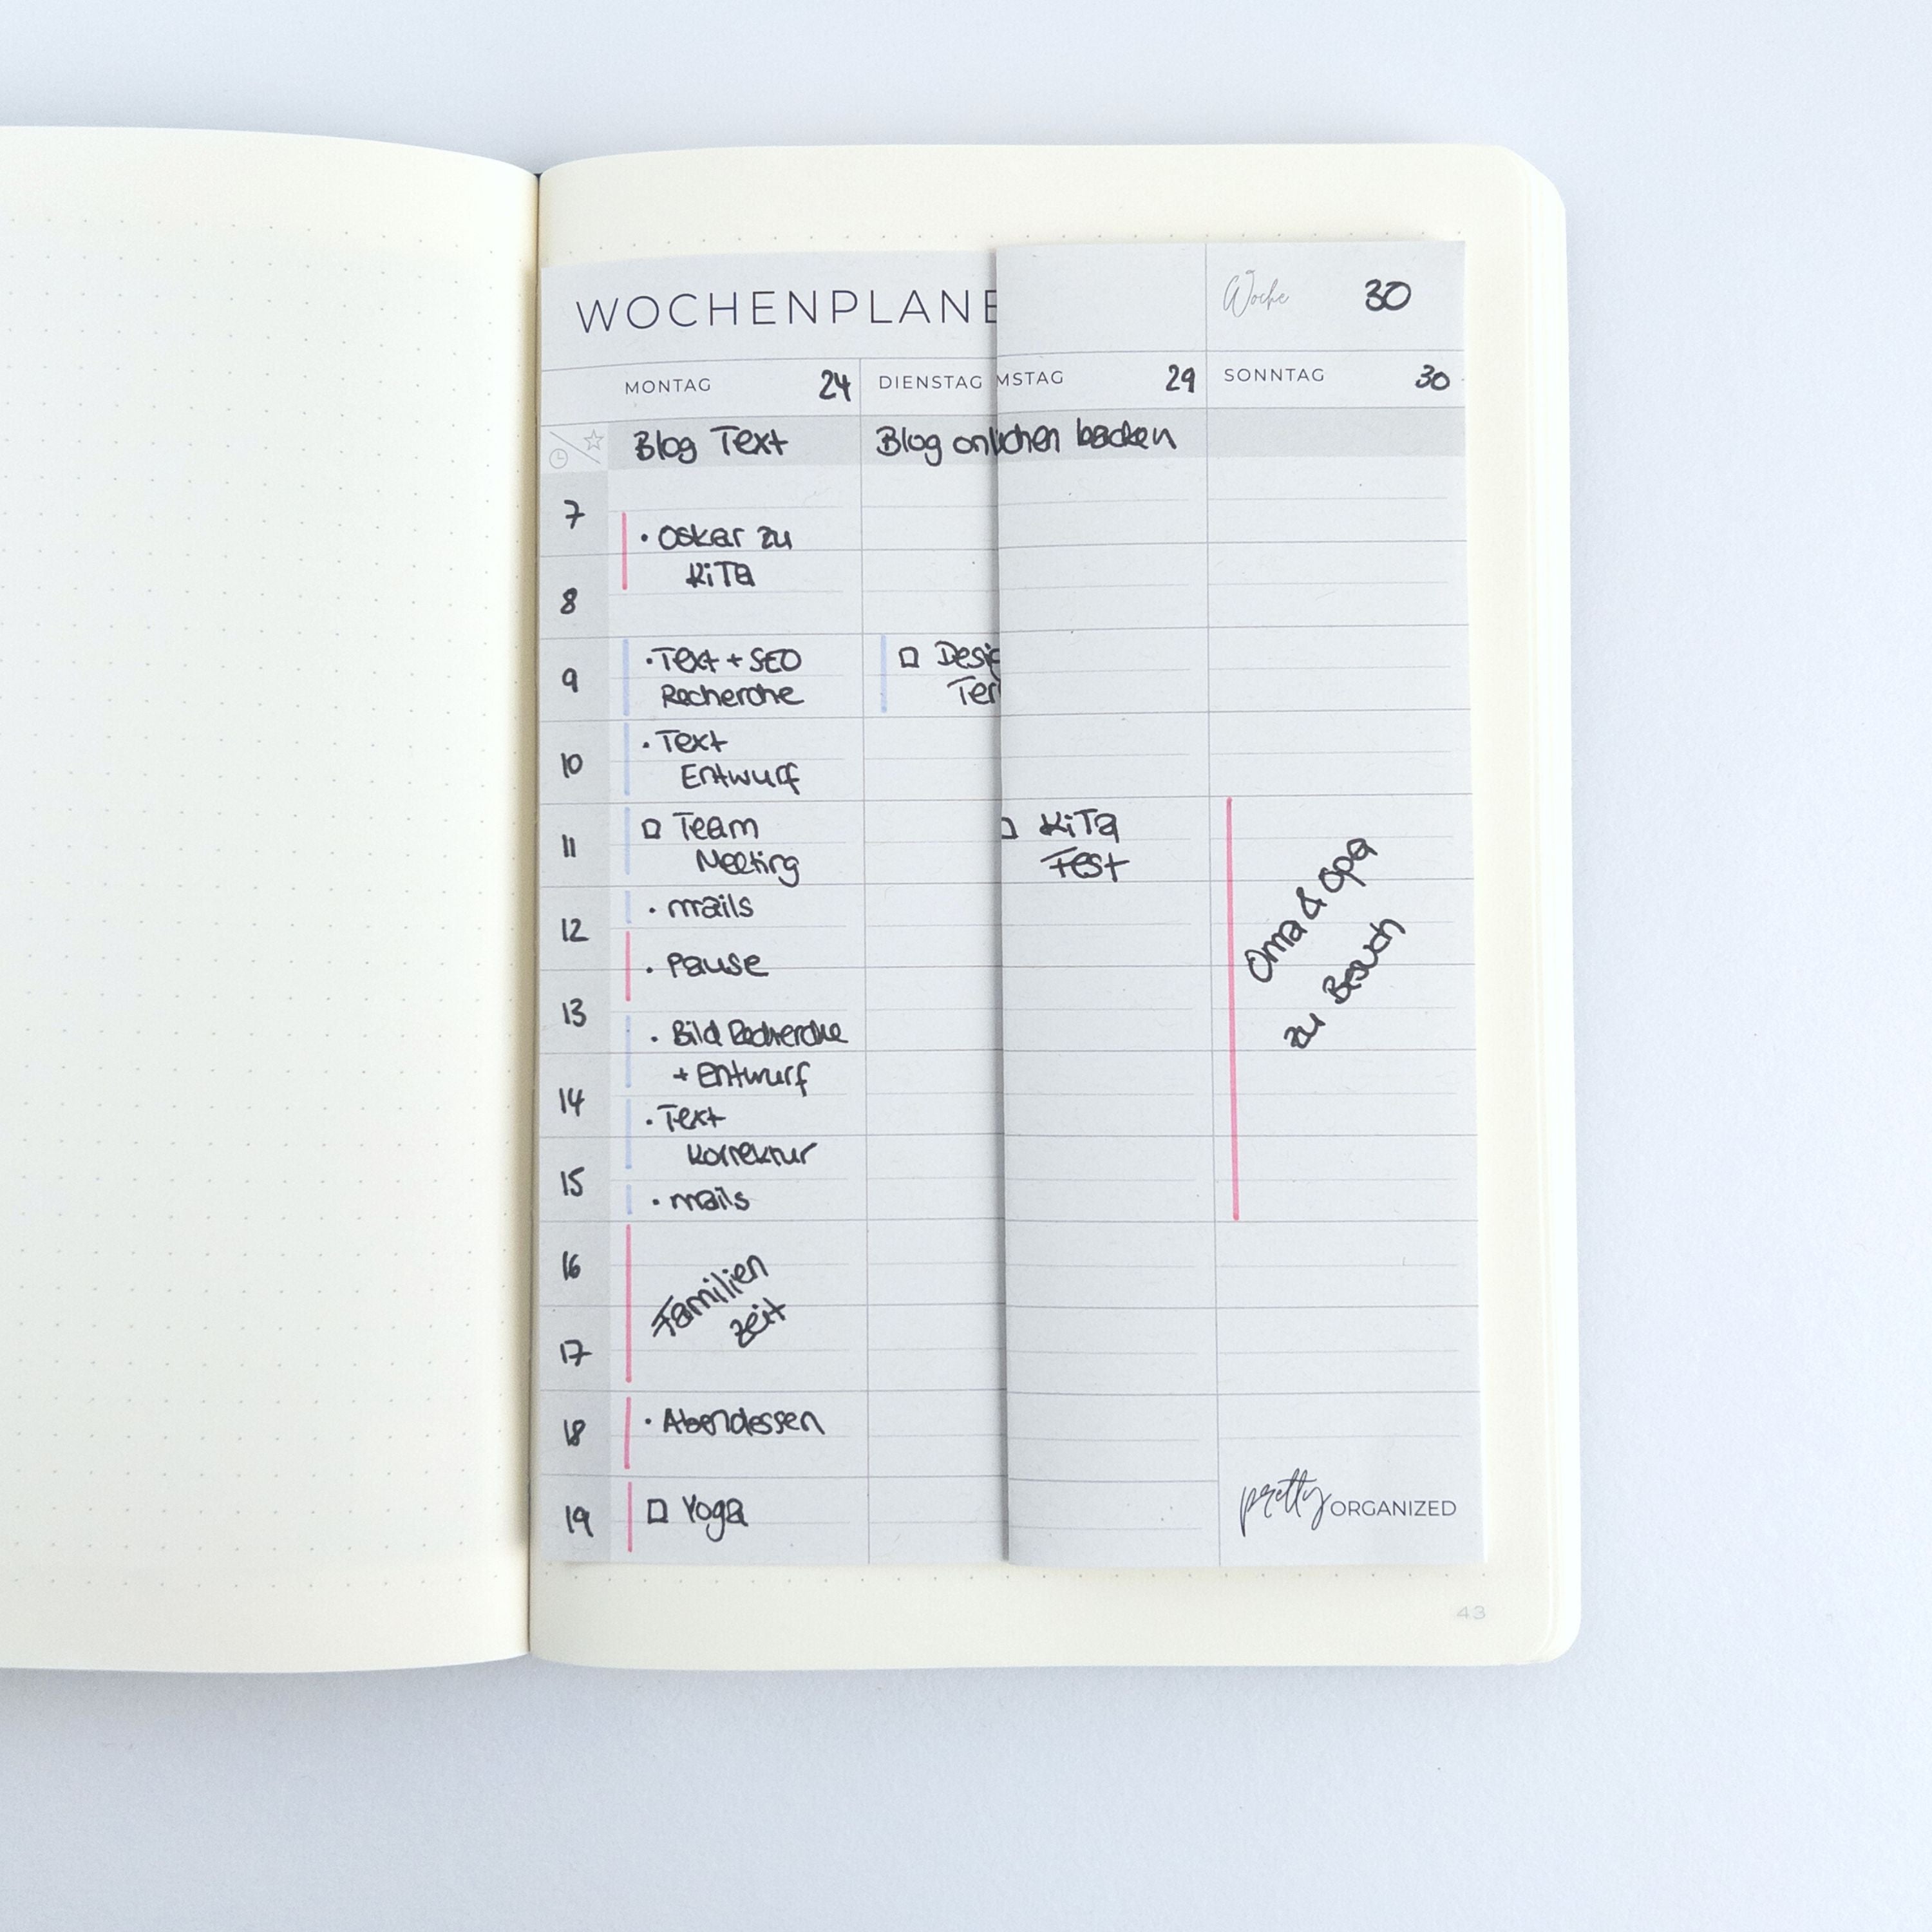 WOCHENPLANE
Woche 30
MONTAG 24
DIENSTAG
MSTAG 29
SONNTAG 30
Blog Text
Blog onl
chen backen
7
• Oskar zu
KiTa
8
9
• Text + SEO
Recherche
Desig
Ter
10
• Text
Entwurf
11
Team
Meeting
KiTa
Fest
12
• mails
• Pause
13
• Bild Recherche
+ Entwurf
14
• Text
Korrektur
15
• mails
Oma & Opa
zu Besuch
16
Familien
zeit
17
18
• Abendessen
19
Yoga
pretty ORGANIZED
43